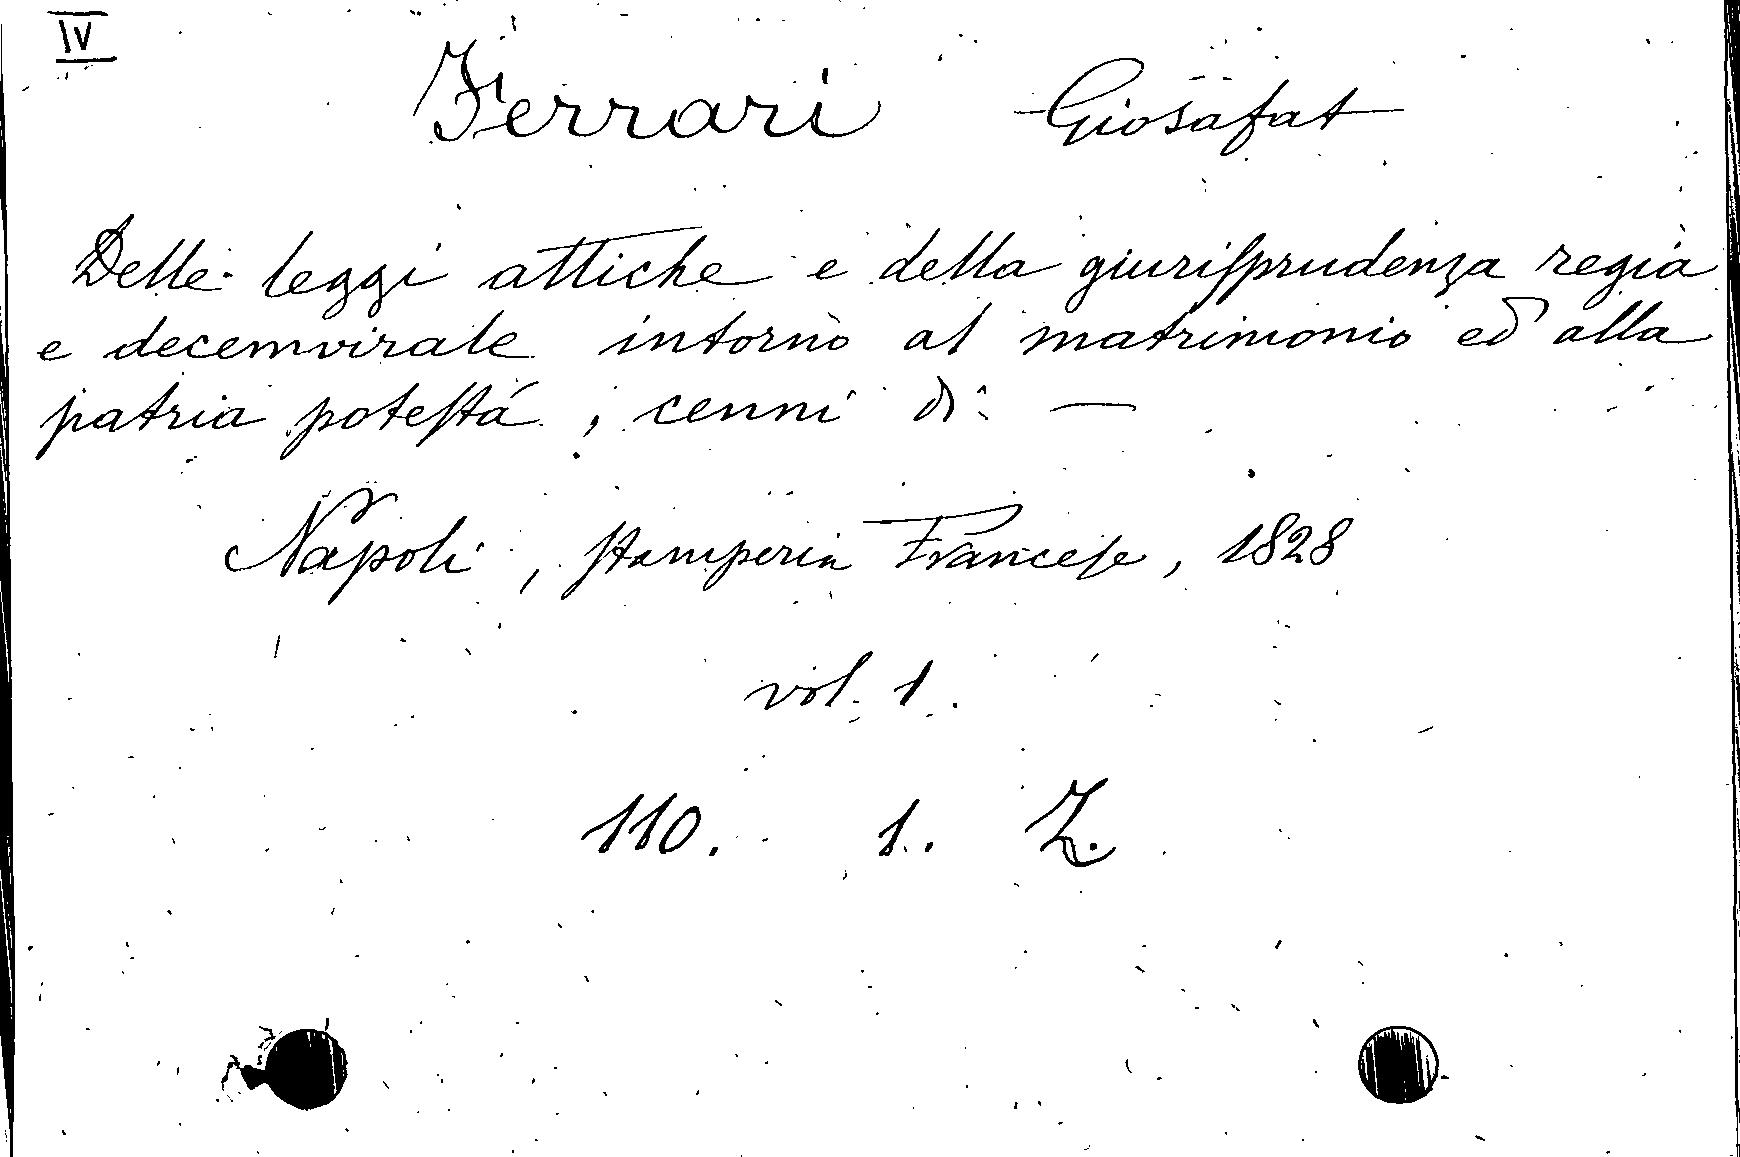 IV
Ferrari Giosafat
Delle leggi attiche e della giuriſprudenza regia
e decemvirale intorno al matrimonio ed alla
patria poteſtá, cenni di —
Napoli, ſtamperia Franceſe, 1828
vol. 1.
110. 1. Z.